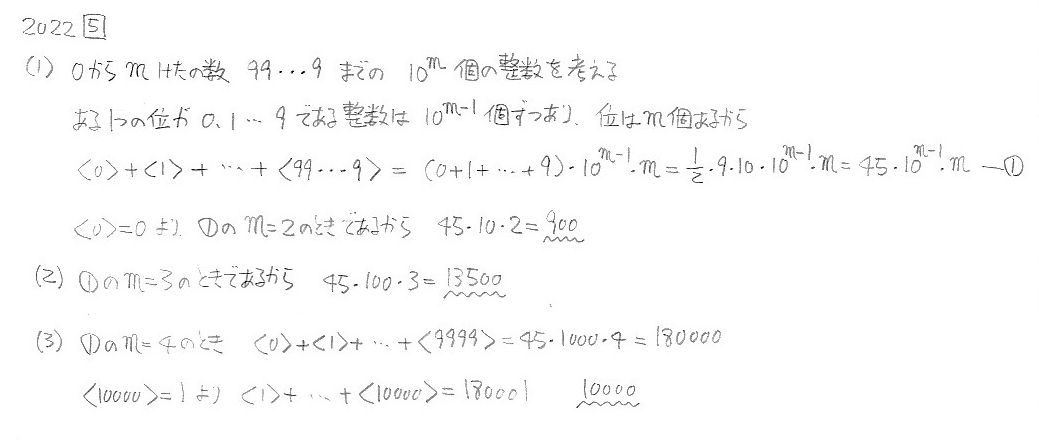 2022 5
(1) 0から m けたの数 99…9 までの 10^m 個の整数を考える
ある1つの位が 0, 1 … 9 である整数は 10^{m-1} 個ずつあり、位は m 個あるから
<0>+<1>+ … +<99…9> = (0+1+…+9)・10^{m-1}・m = 1/2・9・10・10^{m-1}・m = 45・10^{m-1}・m ―①
<0>=0 より ①の m=2のときであるから 45・10・2=900
(2) ①の m=3のときであるから 45・100・3=13500
(3) ①の m=4のとき <0>+<1>+ … +<9999>=45・1000・4=180000
<10000>=1 より <1>+ … +<10000>=180001 10000